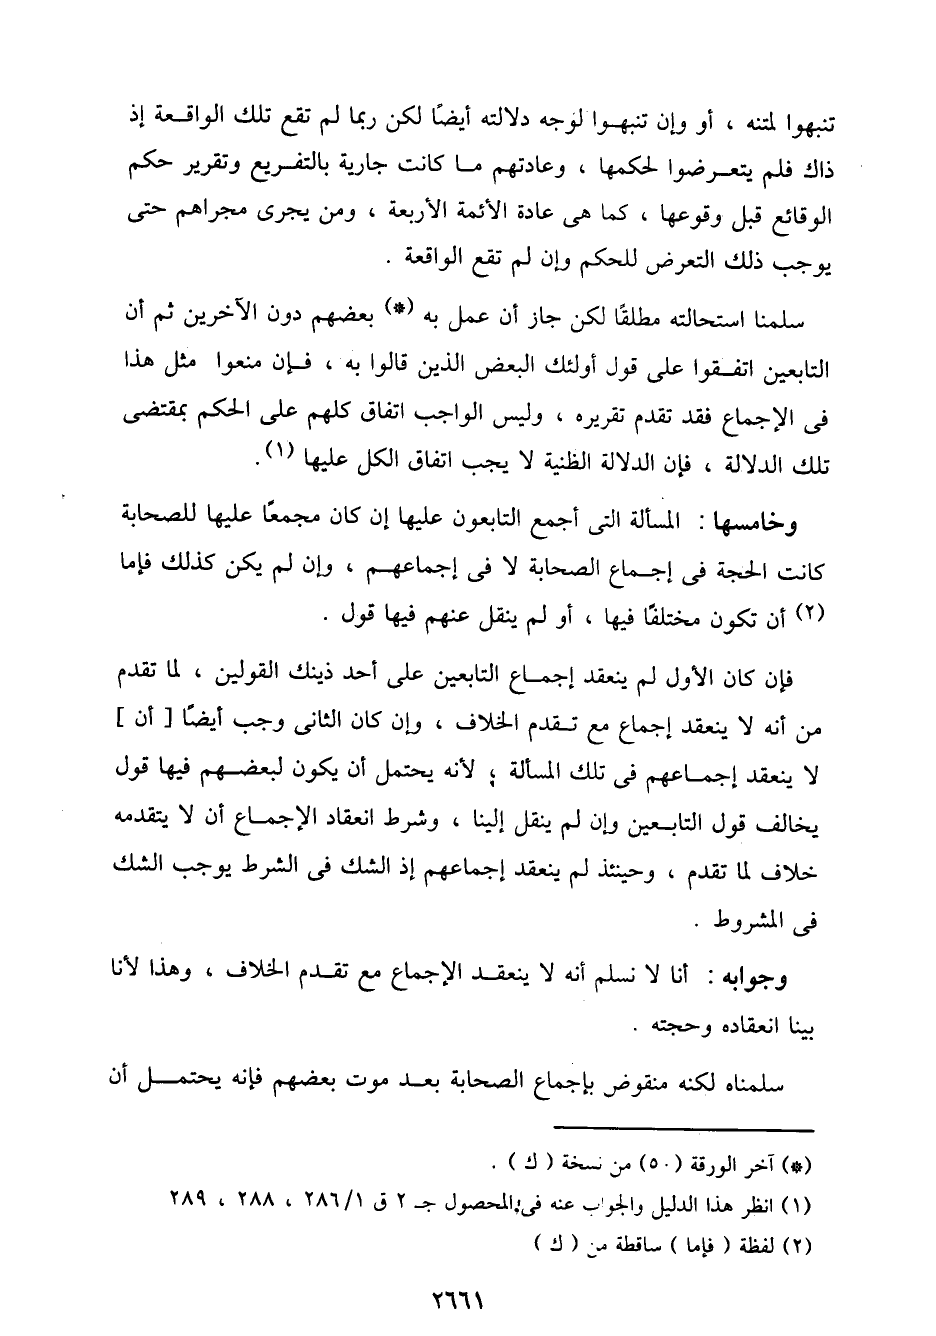 تنبهوا لمتنه ، أو وإن تنبهوا لوجه دلالته أيضًا لكن ربما لم تقع تلك الواقعة إذ
ذاك فلم يتعرضوا لحكمها ، وعادتهم ما كانت جارية بالتفريع وتقرير حكم
الوقائع قبل وقوعها ، كما هى عادة الأئمة الأربعة ، ومن يجرى مجراهم حتى
يوجب ذلك التعرض للحكم وإن لم تقع الواقعة .
سلمنا استحالته مطلقًا لكن جاز أن عمل به (*) بعضهم دون الآخرين ثم أن
التابعين اتفقوا على قول أولئك البعض الذين قالوا به ، فإن منعوا مثل هذا
فى الإجماع فقد تقدم تقريره ، وليس الواجب اتفاق كلهم على الحكم بمقتضى
تلك الدلالة ، فإن الدلالة الظنية لا يجب اتفاق الكل عليها (١).
وخامسها : المسألة التى أجمع التابعون عليها إن كان مجمعًا عليها للصحابة
كانت الحجة فى إجماع الصحابة لا فى إجماعهم ، وإن لم يكن كذلك فإما
(٢) أن تكون مختلفًا فيها ، أو لم ينقل عنهم فيها قول .
فإن كان الأول لم ينعقد إجماع التابعين على أحد ذينك القولين ، لما تقدم
من أنه لا ينعقد إجماع مع تقدم الخلاف ، وإن كان الثانى وجب أيضًا [ أن ]
لا ينعقد إجماعهم فى تلك المسألة ؛ لأنه يحتمل أن يكون لبعضهم فيها قول
يخالف قول التابعين وإن لم ينقل إلينا ، وشرط انعقاد الإجماع أن لا يتقدمه
خلاف لما تقدم ، وحينئذ لم ينعقد إجماعهم إذ الشك فى الشرط يوجب الشك
فى المشروط .
وجوابه : أنا لا نسلم أنه لا ينعقد الإجماع مع تقدم الخلاف ، وهذا لأنا
بينا انعقاده وحجته .
سلمناه لكنه منقوض بإجماع الصحابة بعد موت بعضهم فإنه يحتمل أن
(*) آخر الورقة (٥٠) من نسخة ( ك ) .
(١) انظر هذا الدليل والجواب عنه فى المحصول جـ ٢ ق ٢٨٦/١ ، ٢٨٨ ، ٢٨٩
(٢) لفظة ( فإما ) ساقطة من ( ك )
٢٦٦١